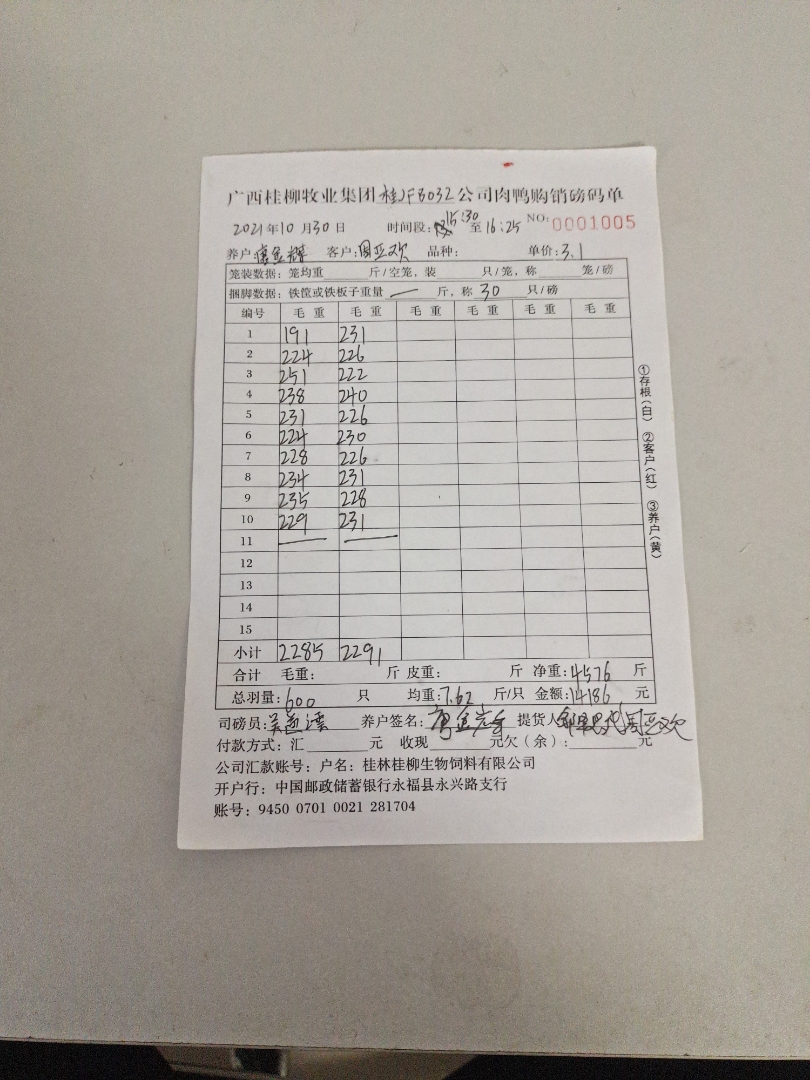 广西桂柳牧业集团桂JFB032公司肉鸭购销磅码单
2021年10月30日 时间段:15:30至16:25 NO:0001005
养户: 客户:周亚欢 品种: 单价:3.1
笼装数据:笼均重 斤/空笼,装 只/笼,称 笼/磅
捆脚数据:铁筐或铁板子重量 — 斤,称 30 只/磅
编号 毛重 毛重 毛重 毛重 毛重 毛重
1 191 231
2 224 226
3 251 222
4 238 240
5 231 226
6 224 230
7 228 226
8 234 231
9 235 228
10 229 231
11 — —
12
13
14
15
小计 2285 2291
合计 毛重: 斤 皮重: 斤 净重:4576 斤
总羽量:600 只 均重:7.62 斤/只 金额:14186 元
司磅员: 养户签名: 提货人 周亚欢
付款方式:汇 元 收现 元欠(余): 元
公司汇款账号:户名:桂林桂柳生物饲料有限公司
开户行:中国邮政储蓄银行永福县永兴路支行
账号:9450 0701 0021 281704
①存根(白) ②客户(红) ③养户(黄)